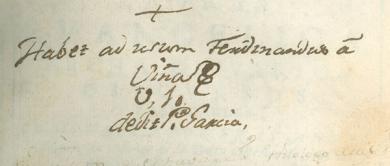 Habet ad usum Ferdinandus à
Viña
dedit P. Garcia,